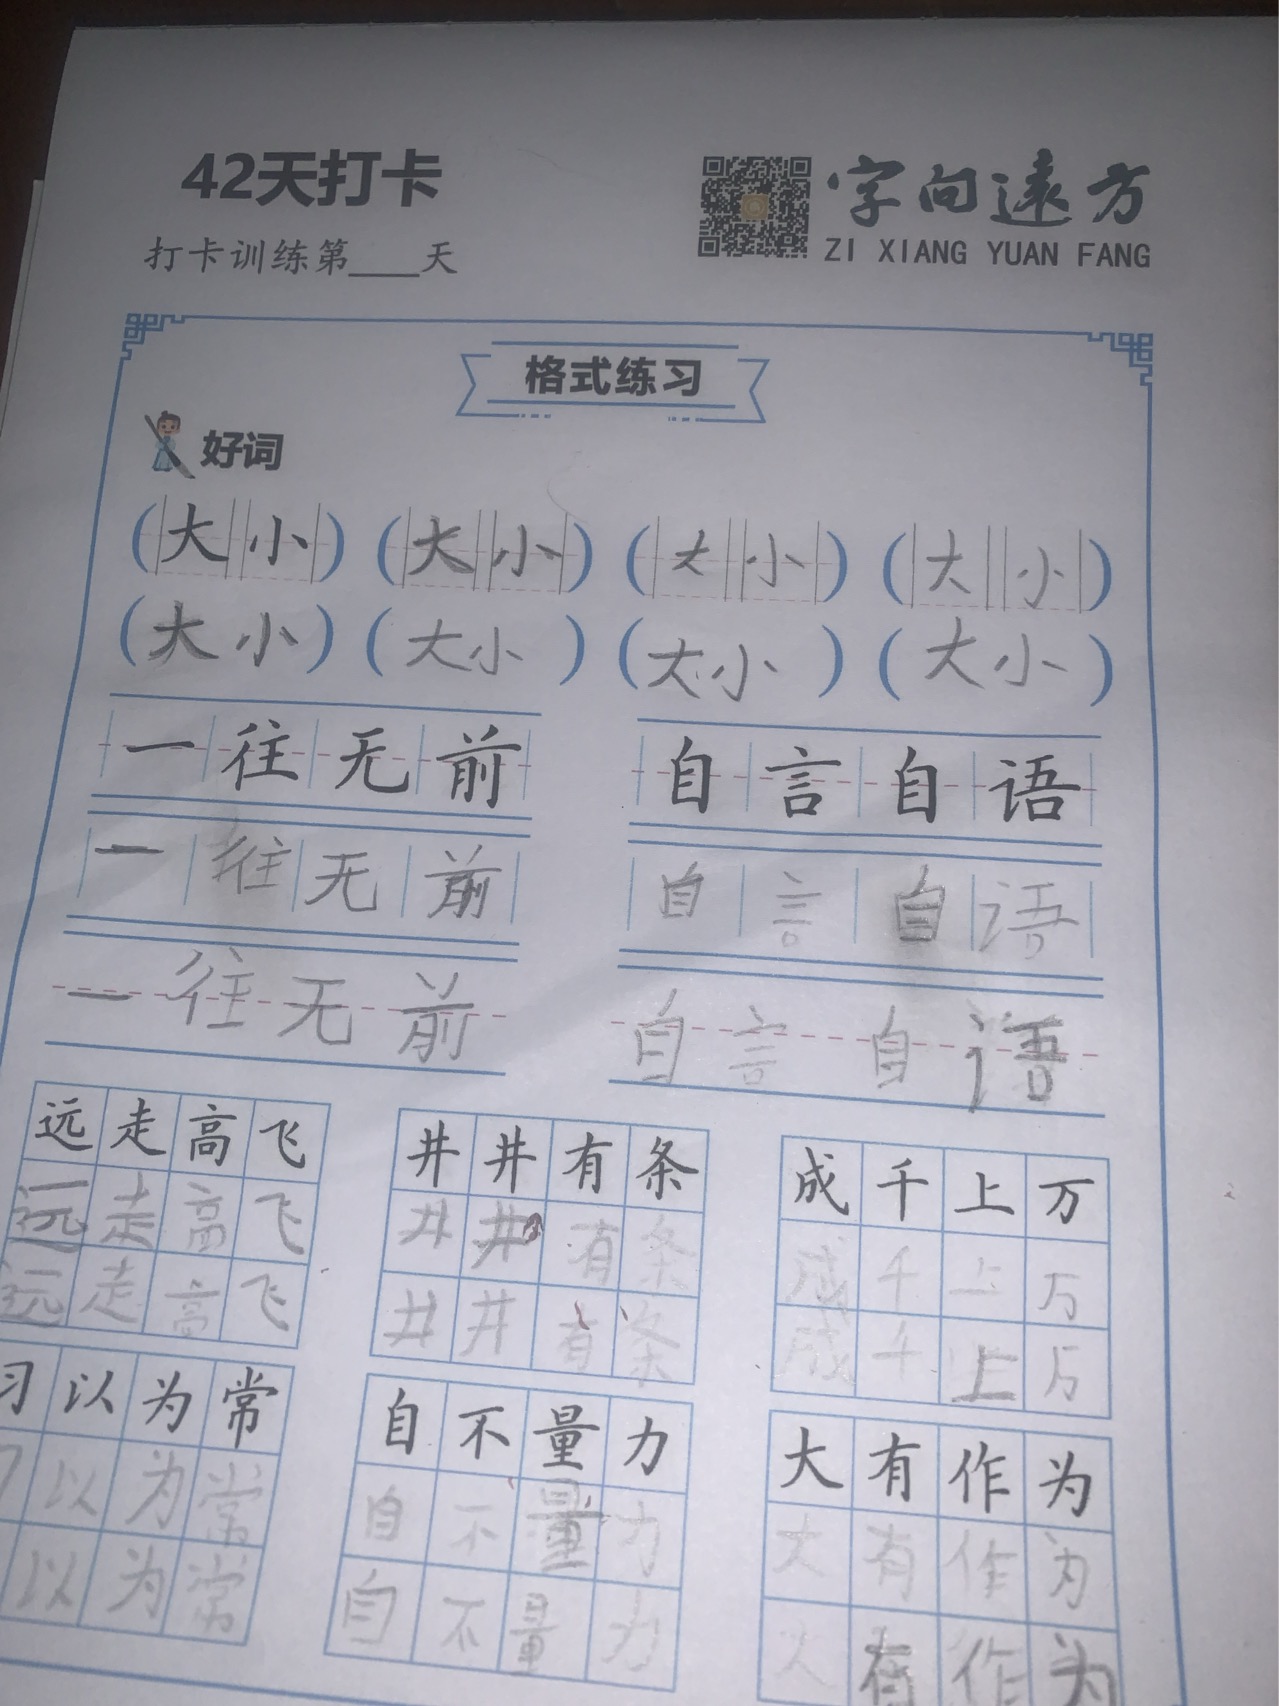 42天打卡
字向遠方
打卡训练第____天
ZI XIANG YUAN FANG
格式练习
好词
(大小) (大小) (大小) (大小)
(大小) (大小) (大小) (大小)
一往无前 自言自语
一往无前 自言自语
一往无前 自言自语
远走高飞 井井有条 成千上万
远走高飞 井井有条 成千上万
远走高飞 井井有条 成千上万
习以为常 自不量力 大有作为
习以为常 自不量力 大有作为
以为常 自不量力 大有作为